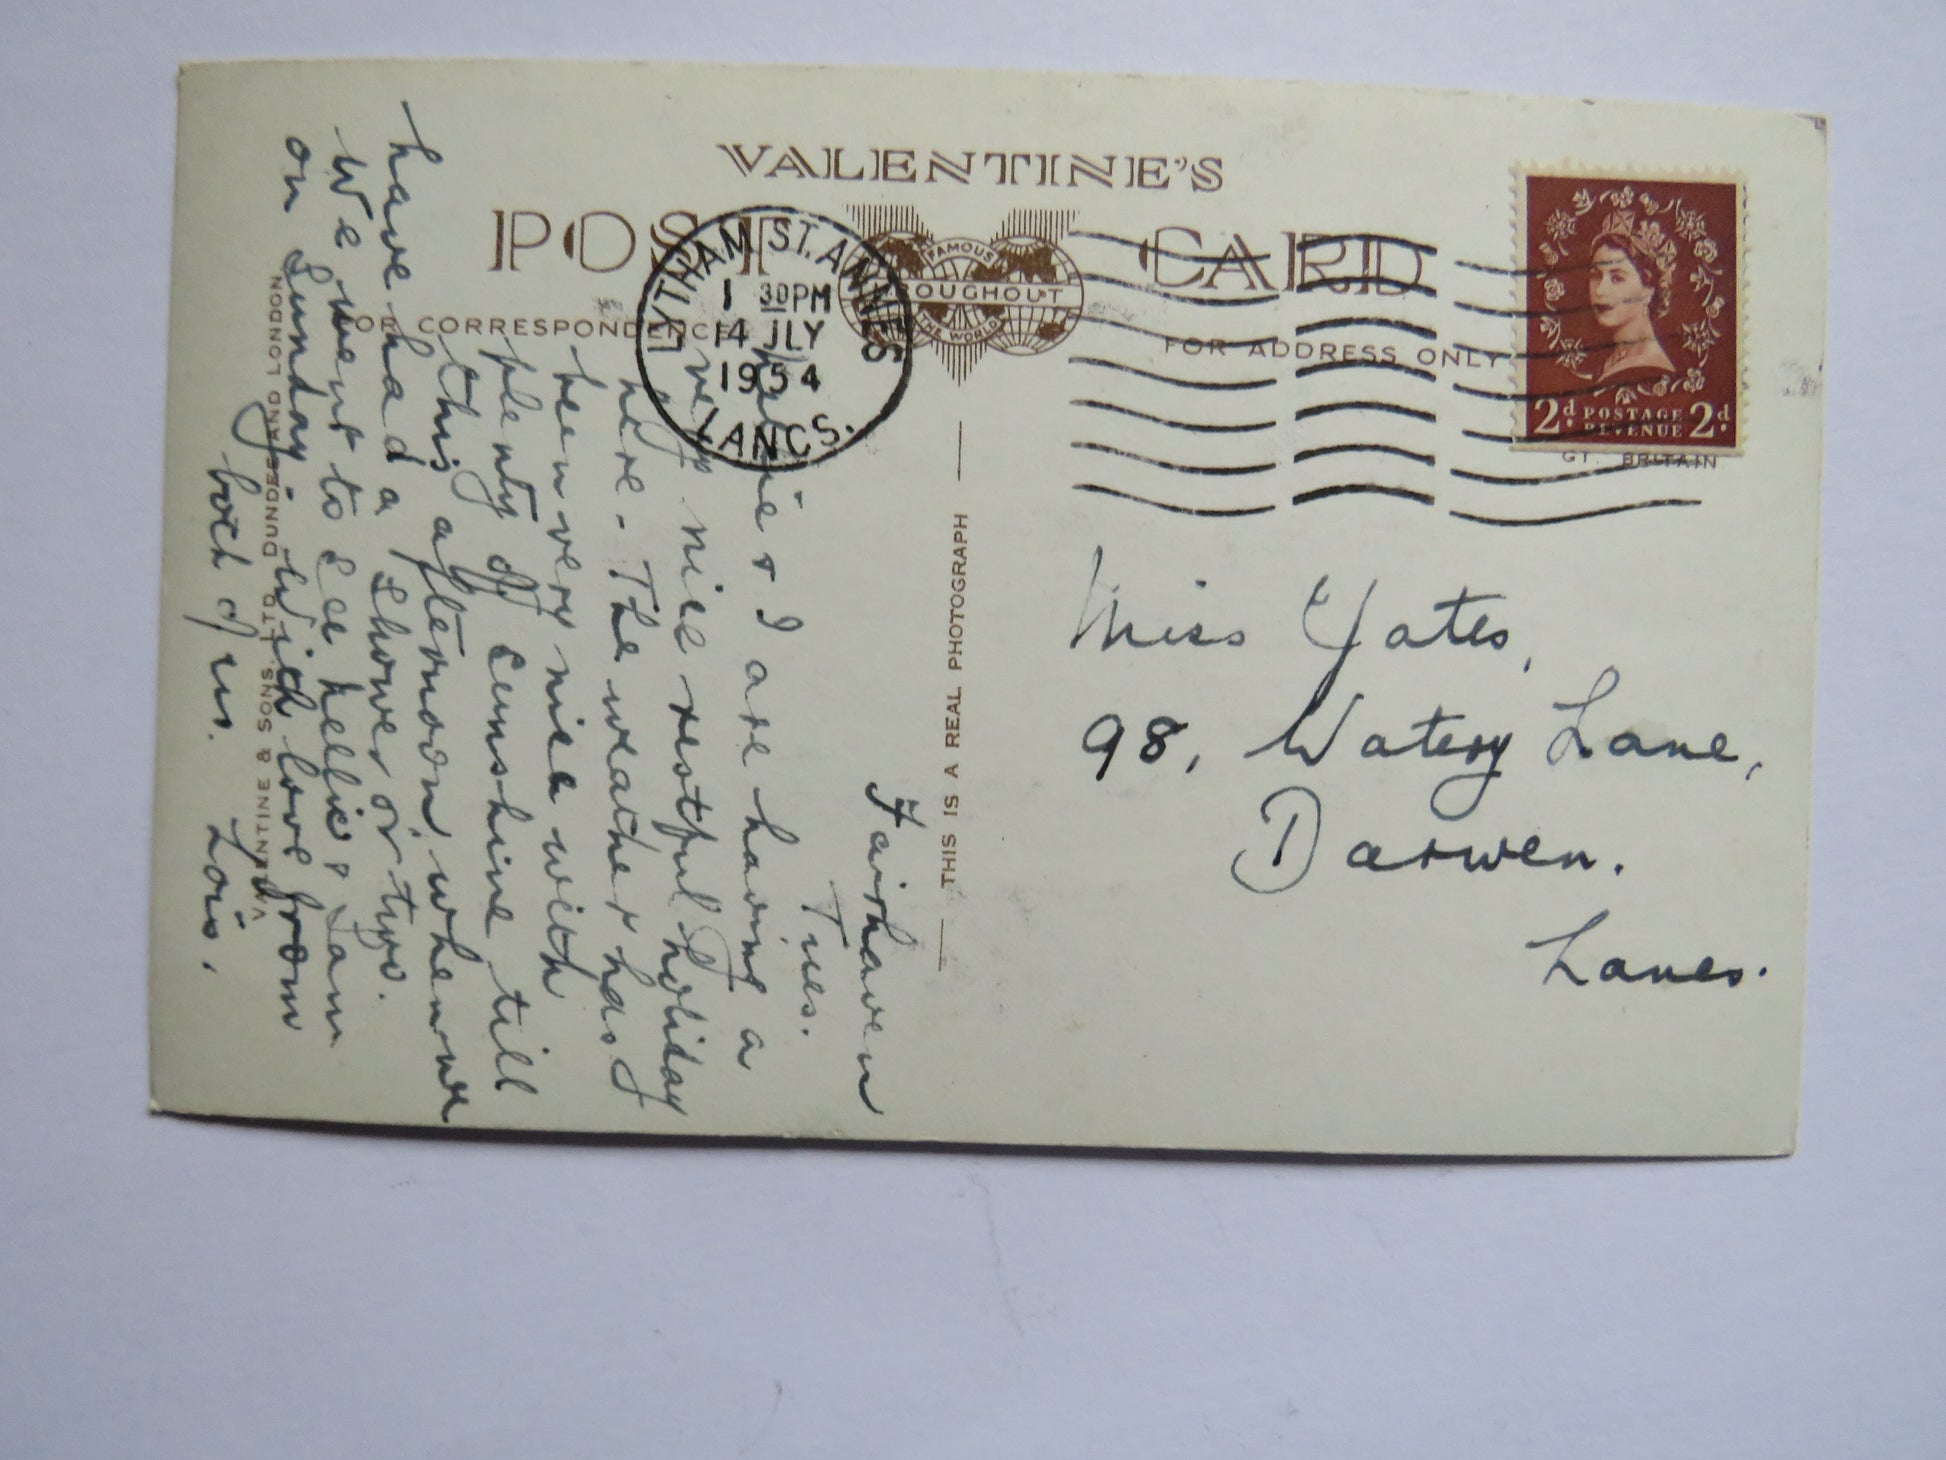 VALENTINE'S
POST CARD
FOR CORRESPONDENCE
FOR ADDRESS ONLY
FAMOUS
THROUGHOUT
THE WORLD
LYTHAM ST. ANNES
1 30PM
14 JLY
1954
LANCS.
2d POSTAGE 2d
REVENUE
GT. BRITAIN
THIS IS A REAL PHOTOGRAPH
VALENTINE & SONS, LTD. DUNDEE AND LONDON.
Fairhaven
Tues.
& I are having a
very nice restful holiday
here. The weather has
been very nice with
plenty of sunshine till
this afternoon, when we
have had a shower or two.
We went to see Nellie & Sam
on Sunday. With love from
both of us. Lois.
Miss Yates,
98, Watery Lane,
Darwen.
Lancs.